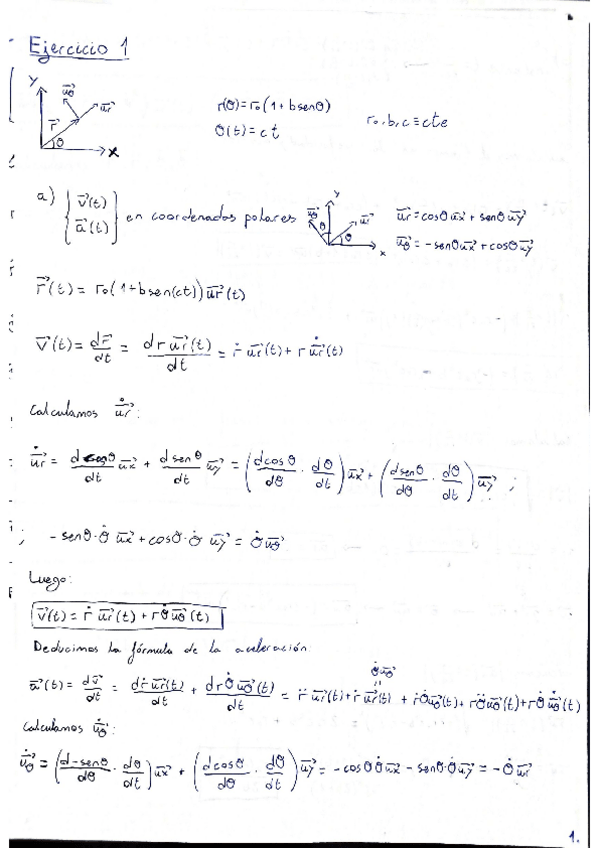 Ejercicio 1
y u⃗θ u⃗r r⃗ θ x
r(θ)=r₀(1+b senθ)
θ(t)=ct
r₀,b,c≡cte
a) { v⃗(t) a⃗(t) } en coordenadas polares
y u⃗θ u⃗r θ θ x
u⃗r=cosθ u⃗x+senθ u⃗y
u⃗θ=-senθ u⃗x+cosθ u⃗y
r⃗(t)=r₀(1+b sen(ct)) u⃗r(t)
v⃗(t)= dr⃗/dt = d r u⃗r(t)/dt = ṙ u⃗r(t)+r u̇⃗r(t)
Calculamos u̇⃗r:
u̇⃗r = d cosθ/dt u⃗x + d senθ/dt u⃗y = (dcosθ/dθ · dθ/dt) u⃗x + (dsenθ/dθ · dθ/dt) u⃗y ;
; -senθ·θ̇ u⃗x+cosθ·θ̇ u⃗y = θ̇ u⃗θ
Luego:
v⃗(t)=ṙ u⃗r(t)+rθ̇ u⃗θ(t)
Deducimos la fórmula de la aceleración:
θ̇u⃗θ
a⃗(t)= dv⃗/dt = dṙ u⃗r(t)/dt + d rθ̇ u⃗θ(t)/dt = r̈ u⃗r(t)+ṙ u̇⃗r(t) + ṙθ̇u⃗θ(t)+rθ̈u⃗θ(t)+rθ̇ u̇⃗θ(t)
Calculamos u̇⃗θ:
u̇⃗θ = (d-senθ/dθ · dθ/dt) u⃗x + (dcosθ/dθ · dθ/dt) u⃗y = -cosθ θ̇ u⃗x - senθ·θ̇ u⃗y = -θ̇ u⃗r
1.